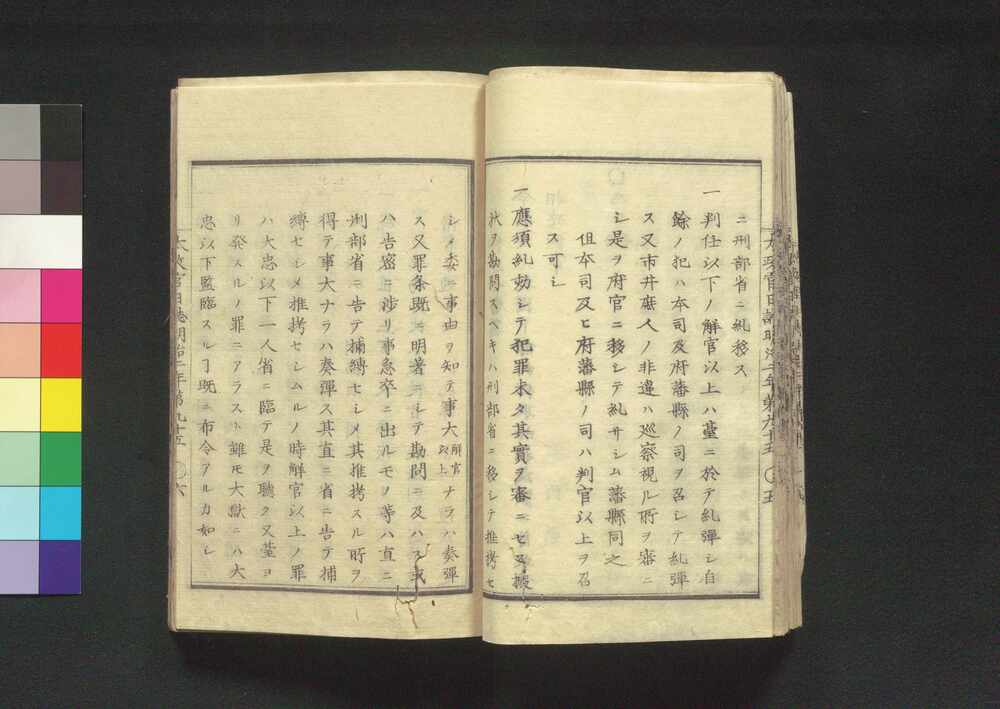 ニ刑部省ニ糺移ス
一判任以下ノ解官以上ハ臺ニ於テ糺彈シ自
餘ノ犯ハ本司及府藩縣ノ司ヲ召シテ糺彈
ス又市井庶人ノ非違ハ巡察視ル所ヲ審ニ
シ是ヲ府官ニ移シテ糺サシム藩縣同之
但本司及ヒ府藩縣ノ司ハ判官以上ヲ召
ス可シ
一應須糺劾シテ犯罪未タ其實ヲ審ニセス據
狀ヲ勘問スヘキハ刑部省ニ移シテ推拷セ
太政官日誌明治二年第九十五 ○五
シメ委ニ事由ヲ知テ事大解官以上ナラハ奏彈
ス又罪条既ニ明著ニシテ勘問ニ及ハス或
ハ告密ニ渉リ事急卒ニ出ルモノ等ハ直ニ
刑部省ニ告テ捕縛セシメ其推拷スル所ヲ
得テ事大ナラハ奏彈ス其直ニ省ニ告テ捕
縛セシメ推拷セシムルノ時解官以上ノ罪
ハ大忠以下一人省ニ臨テ是ヲ聽ク又臺ヨ
リ発スルノ罪ニアラスト雖モ大獄ニハ大
忠以下監臨スルヿ既ニ布令アルカ如シ
太政官日誌明治二年第九十五 ○六